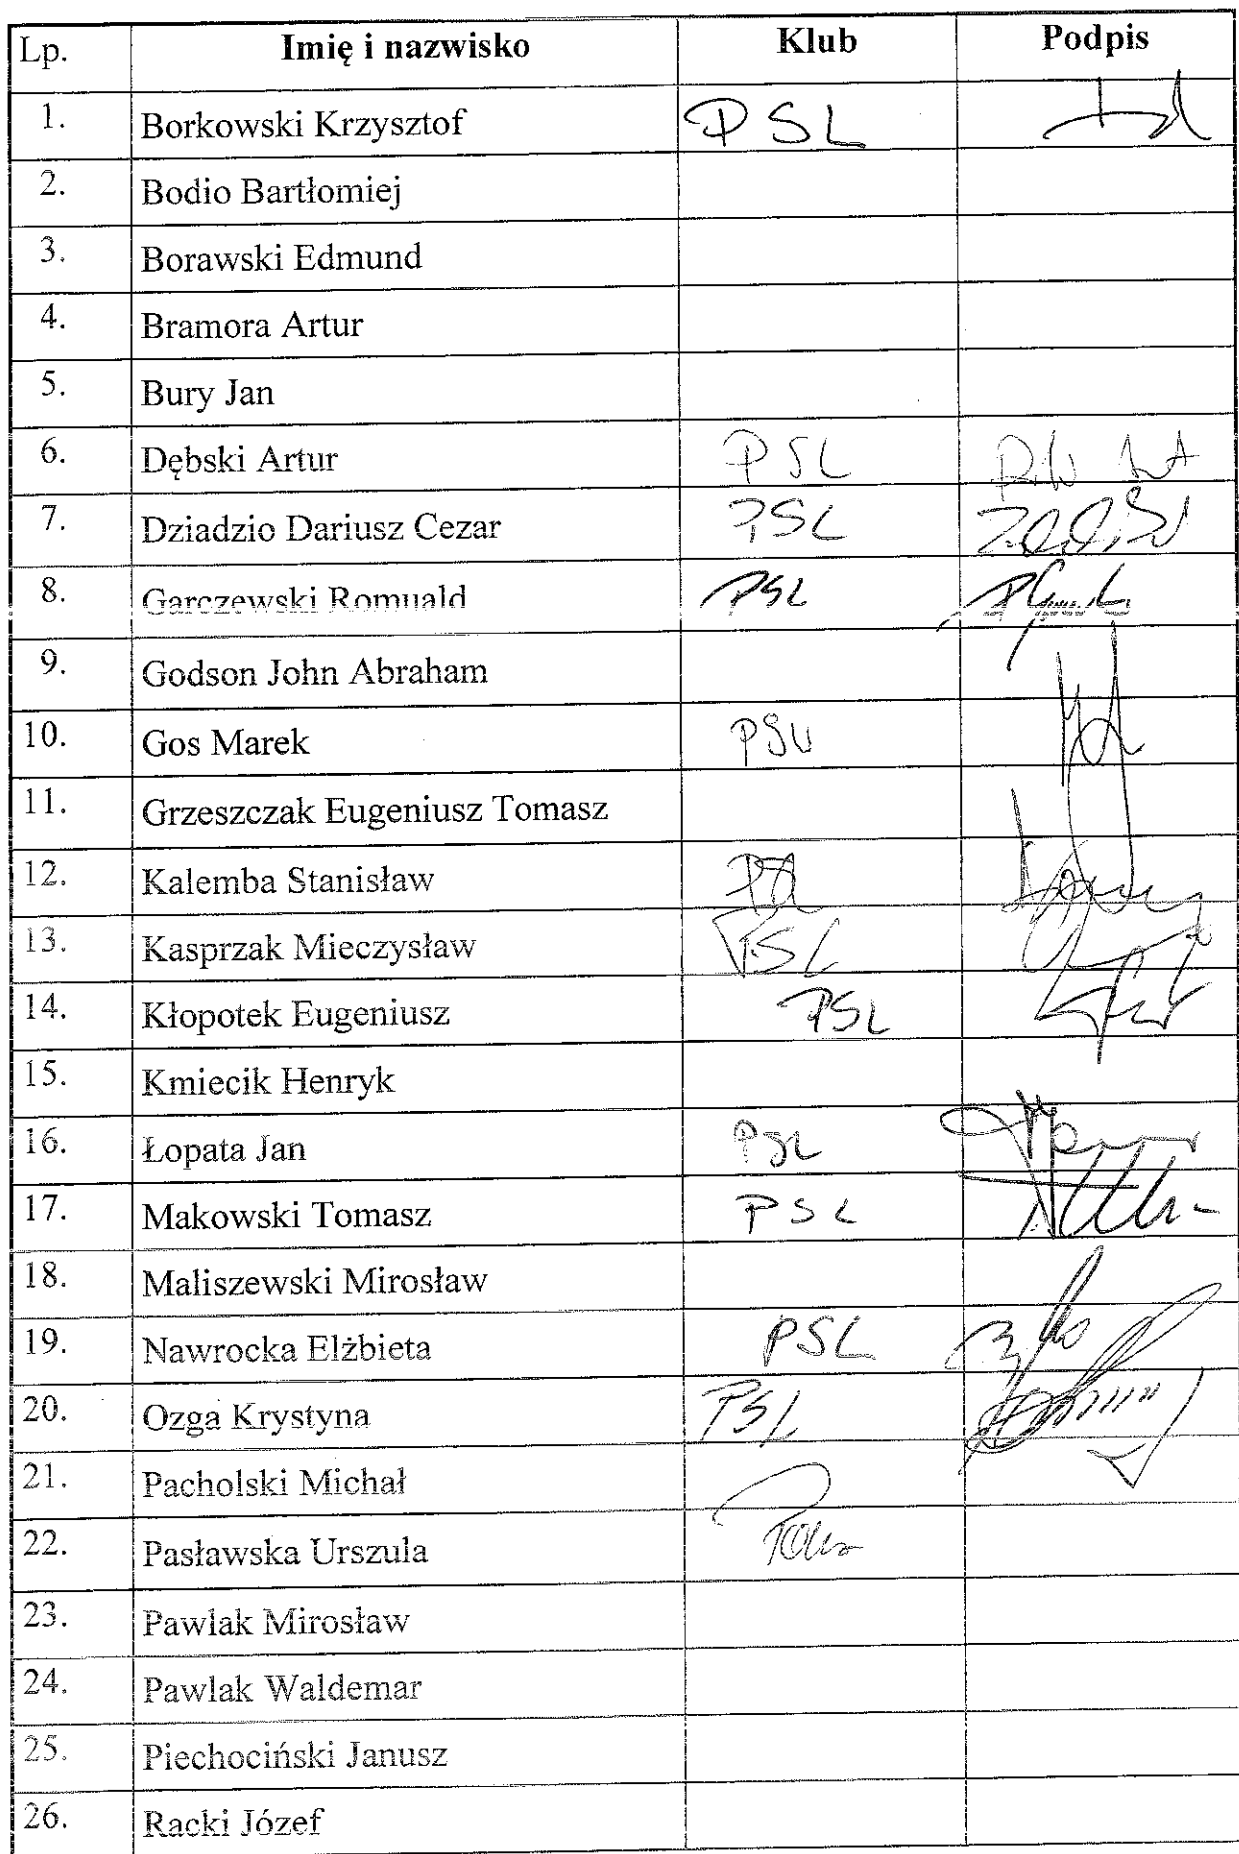 Lp. Imię i nazwisko Klub Podpis
1. Borkowski Krzysztof PSL
2. Bodio Bartłomiej
3. Borawski Edmund
4. Bramora Artur
5. Bury Jan
6. Dębski Artur PSL
7. Dziadzio Dariusz Cezar PSL
8. Garczewski Romuald PSL
9. Godson John Abraham
10. Gos Marek PSL
11. Grzeszczak Eugeniusz Tomasz
12. Kalemba Stanisław PSL
13. Kasprzak Mieczysław PSL
14. Kłopotek Eugeniusz PSL
15. Kmiecik Henryk
16. Łopata Jan PSL
17. Makowski Tomasz PSL
18. Maliszewski Mirosław
19. Nawrocka Elżbieta PSL
20. Ozga Krystyna PSL
21. Pacholski Michał
22. Pasławska Urszula
23. Pawlak Mirosław
24. Pawlak Waldemar
25. Piechociński Janusz
26. Racki Józef